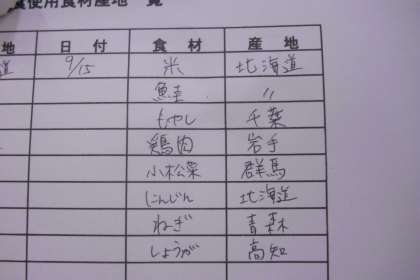 食使用食材産地一覧
地 日付 食材 産地
道 9/15 米 北海道
鮭 〃
もやし 千葉
鶏肉 岩手
小松菜 群馬
にんじん 北海道
ねぎ 青森
しょうが 高知